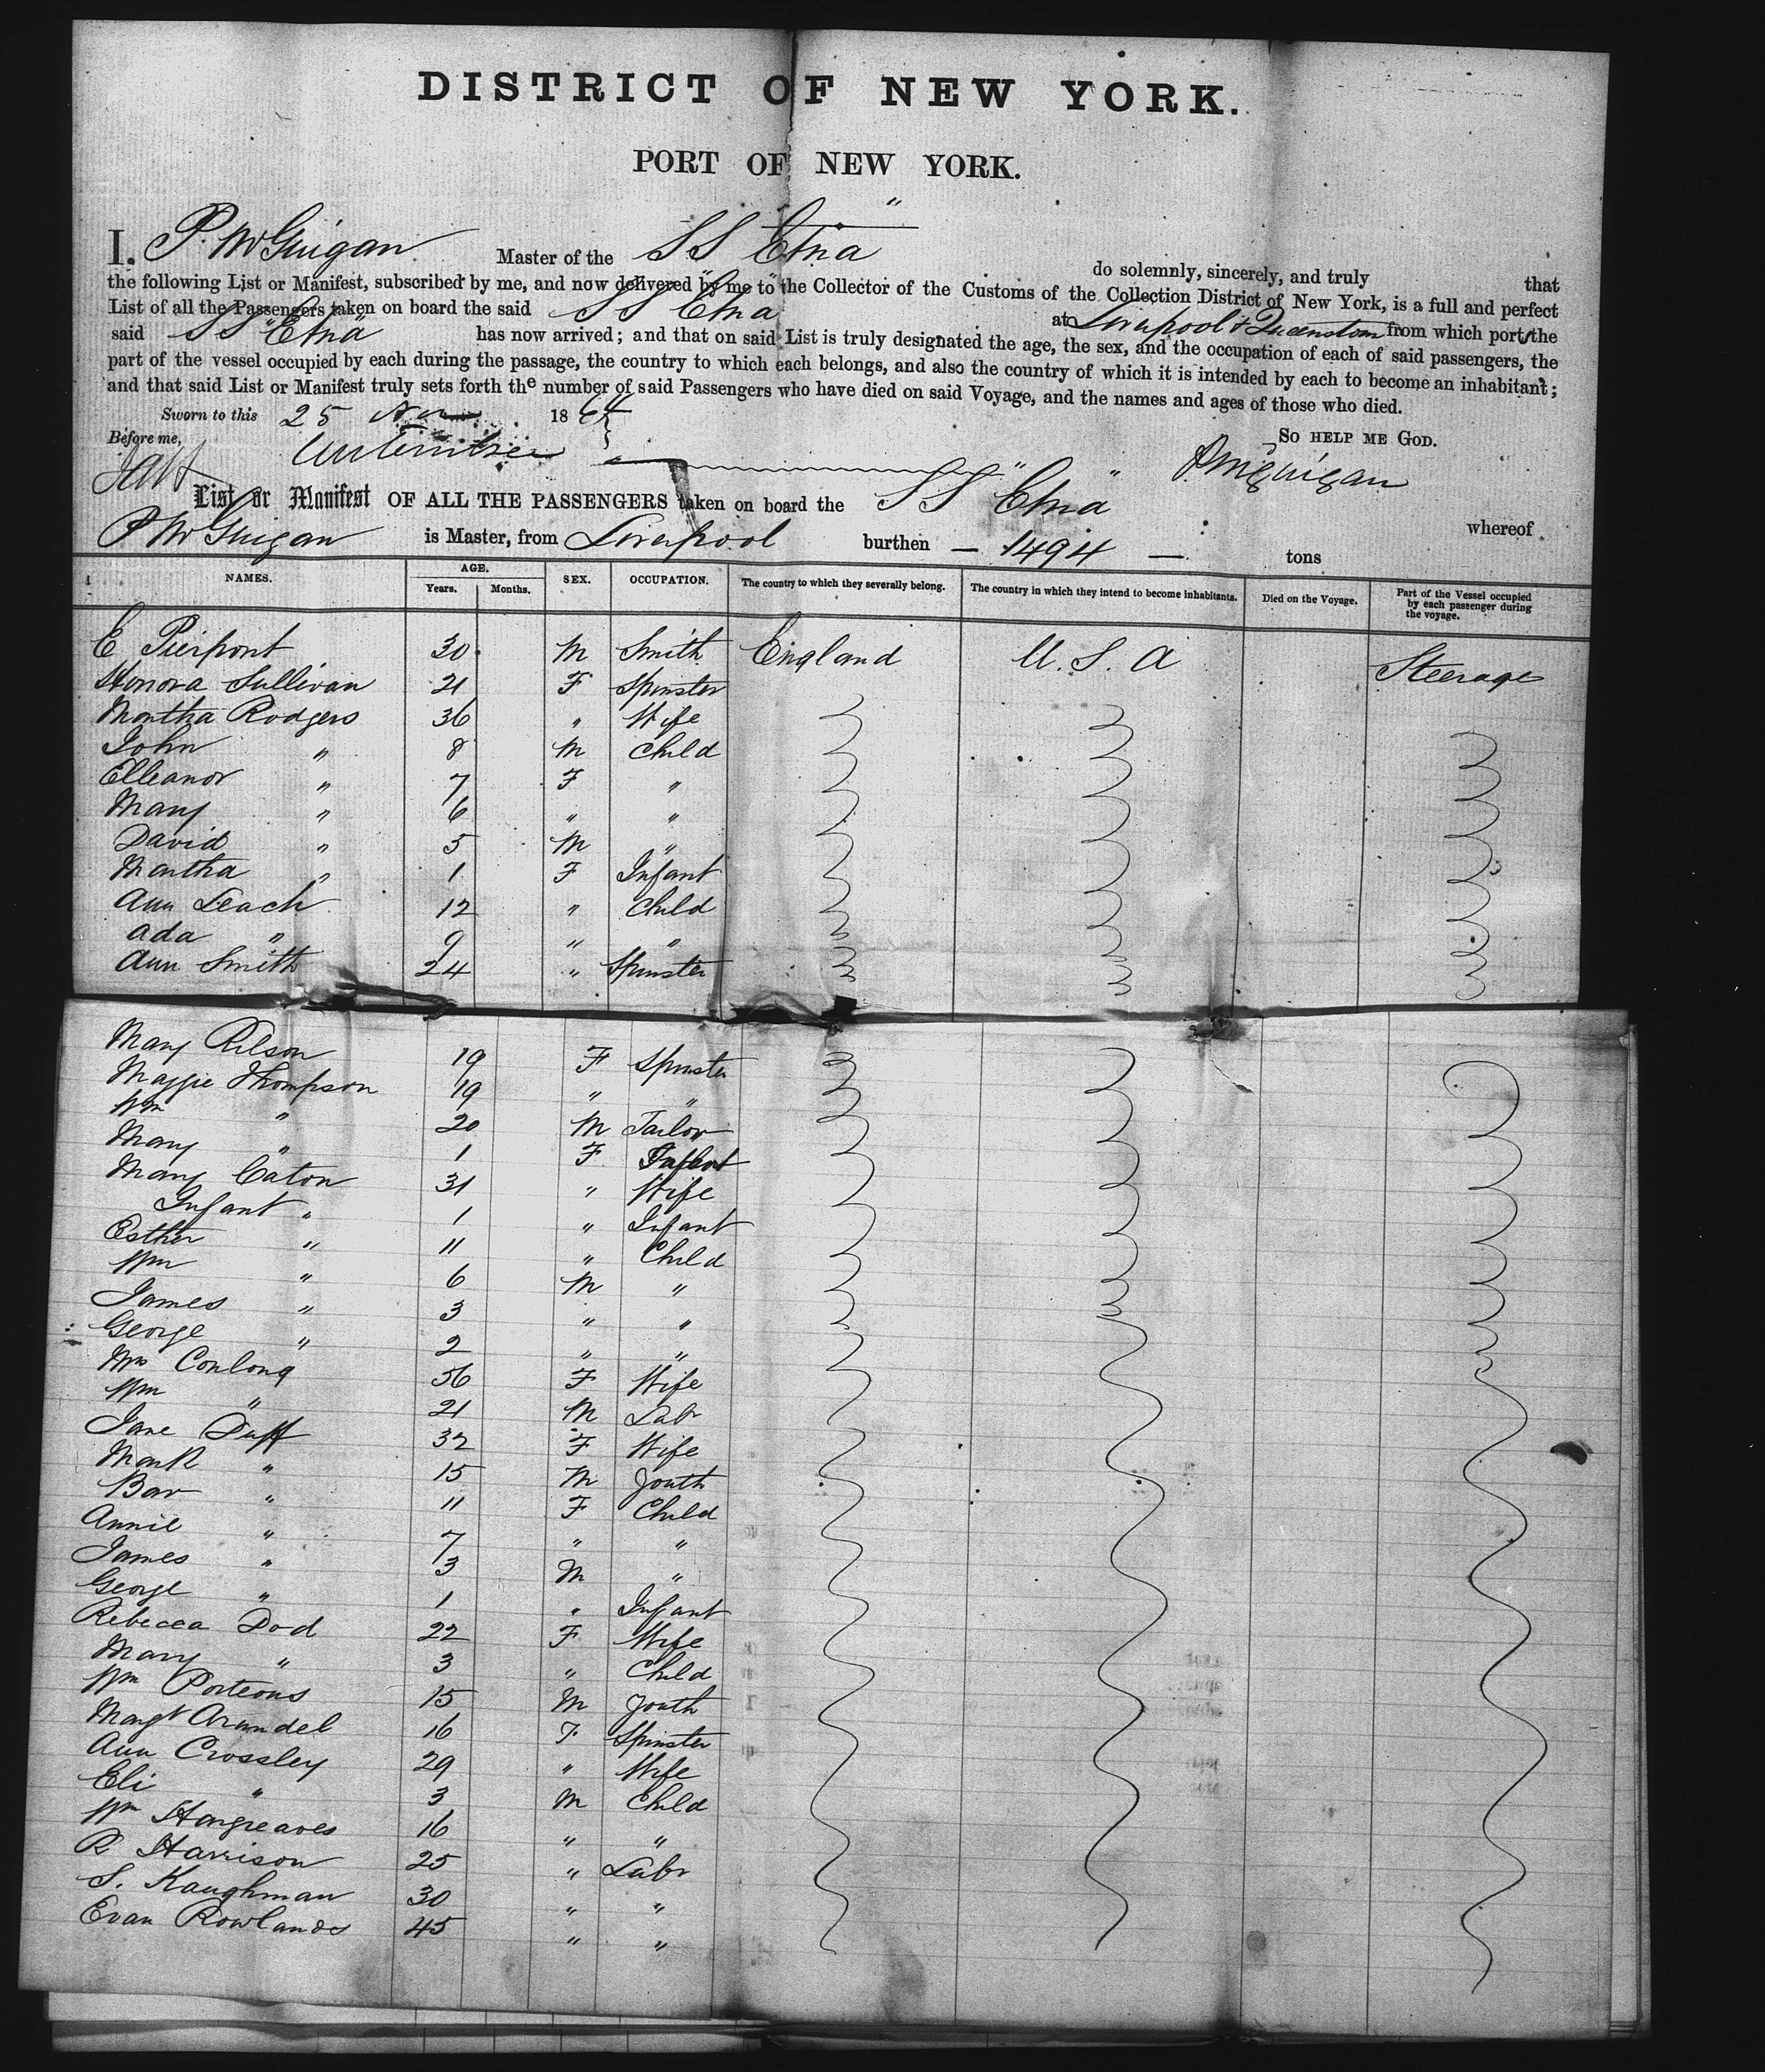 DISTRICT OF NEW YORK.
PORT OF NEW YORK.
I, P. McGuigan Master of the SS "Etna" do solemnly, sincerely, and truly that
the following List or Manifest, subscribed by me, and now delivered by me to the Collector of the Customs of the Collection District of New York, is a full and perfect
List of all the Passengers taken on board the said SS "Etna" at Liverpool & Queenstown from which port the
said SS "Etna" has now arrived; and that on said List is truly designated the age, the sex, and the occupation of each of said passengers, the
part of the vessel occupied by each during the passage, the country to which each belongs, and also the country of which it is intended by each to become an inhabitant;
and that said List or Manifest truly sets forth the number of said Passengers who have died on said Voyage, and the names and ages of those who died.
Sworn to this 25 Nov 1864
SO HELP ME GOD.
Before me, P. McGuigan
List or Manifest OF ALL THE PASSENGERS taken on board the SS "Etna" whereof
P McGuigan is Master, from Liverpool burthen — 1494 — tons
NAMES. AGE. Years. Months. SEX. OCCUPATION. The country to which they severally belong. The country in which they intend to become inhabitants. Died on the Voyage. Part of the Vessel occupied by each passenger during the voyage.
E Pierpont 30 M Smith England U.S.A Steerage
Honora Sullivan 21 F Spinster
Martha Rodgers 36 " Wife
John " 8 M Child
Elleanor " 7 F "
Mary " 6 " "
David " 5 M "
Martha " 1 F Infant
Ann Leach 12 " Child
Ada " 9 " "
Ann Smith 24 " Spinster
Mary 19 F Spinster
Maggie Thompson 19 " "
Wm " 20 M Tailor
Mary " 1 F Infant
Mary Caton 31 " Wife
Infant " 1 " Infant
Esther " 11 " Child
Wm " 6 M "
James " 3 " "
George " 2 " "
Mrs Conlong 56 F Wife
Wm " 21 M Labr
Jane Duff 32 F Wife
Mark " 15 M Youth
Bar " 11 F Child
Annie " 7 " "
James " 3 M "
George " 1 " Infant
Rebecca Dod 22 F Wife
Mary " 3 " Child
Wm Porteous 15 M Youth
Margt Arundel 16 F Spinster
Ann Crossley 29 " Wife
Eli " 3 M Child
Wm Hargreaves 16 " "
R Harrison 25 " Labr
S. Kaughman 30 " "
Evan Rowlands 45 " "